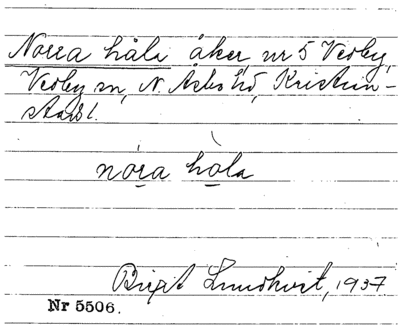 Norra håli åker, nr 5 Vedby,
Vedby sn, N. Åsbo hd, Kristian-
stads l.
nó̱ra hò̱la
Birgit Lundkvist, 1937
Nr 5506.